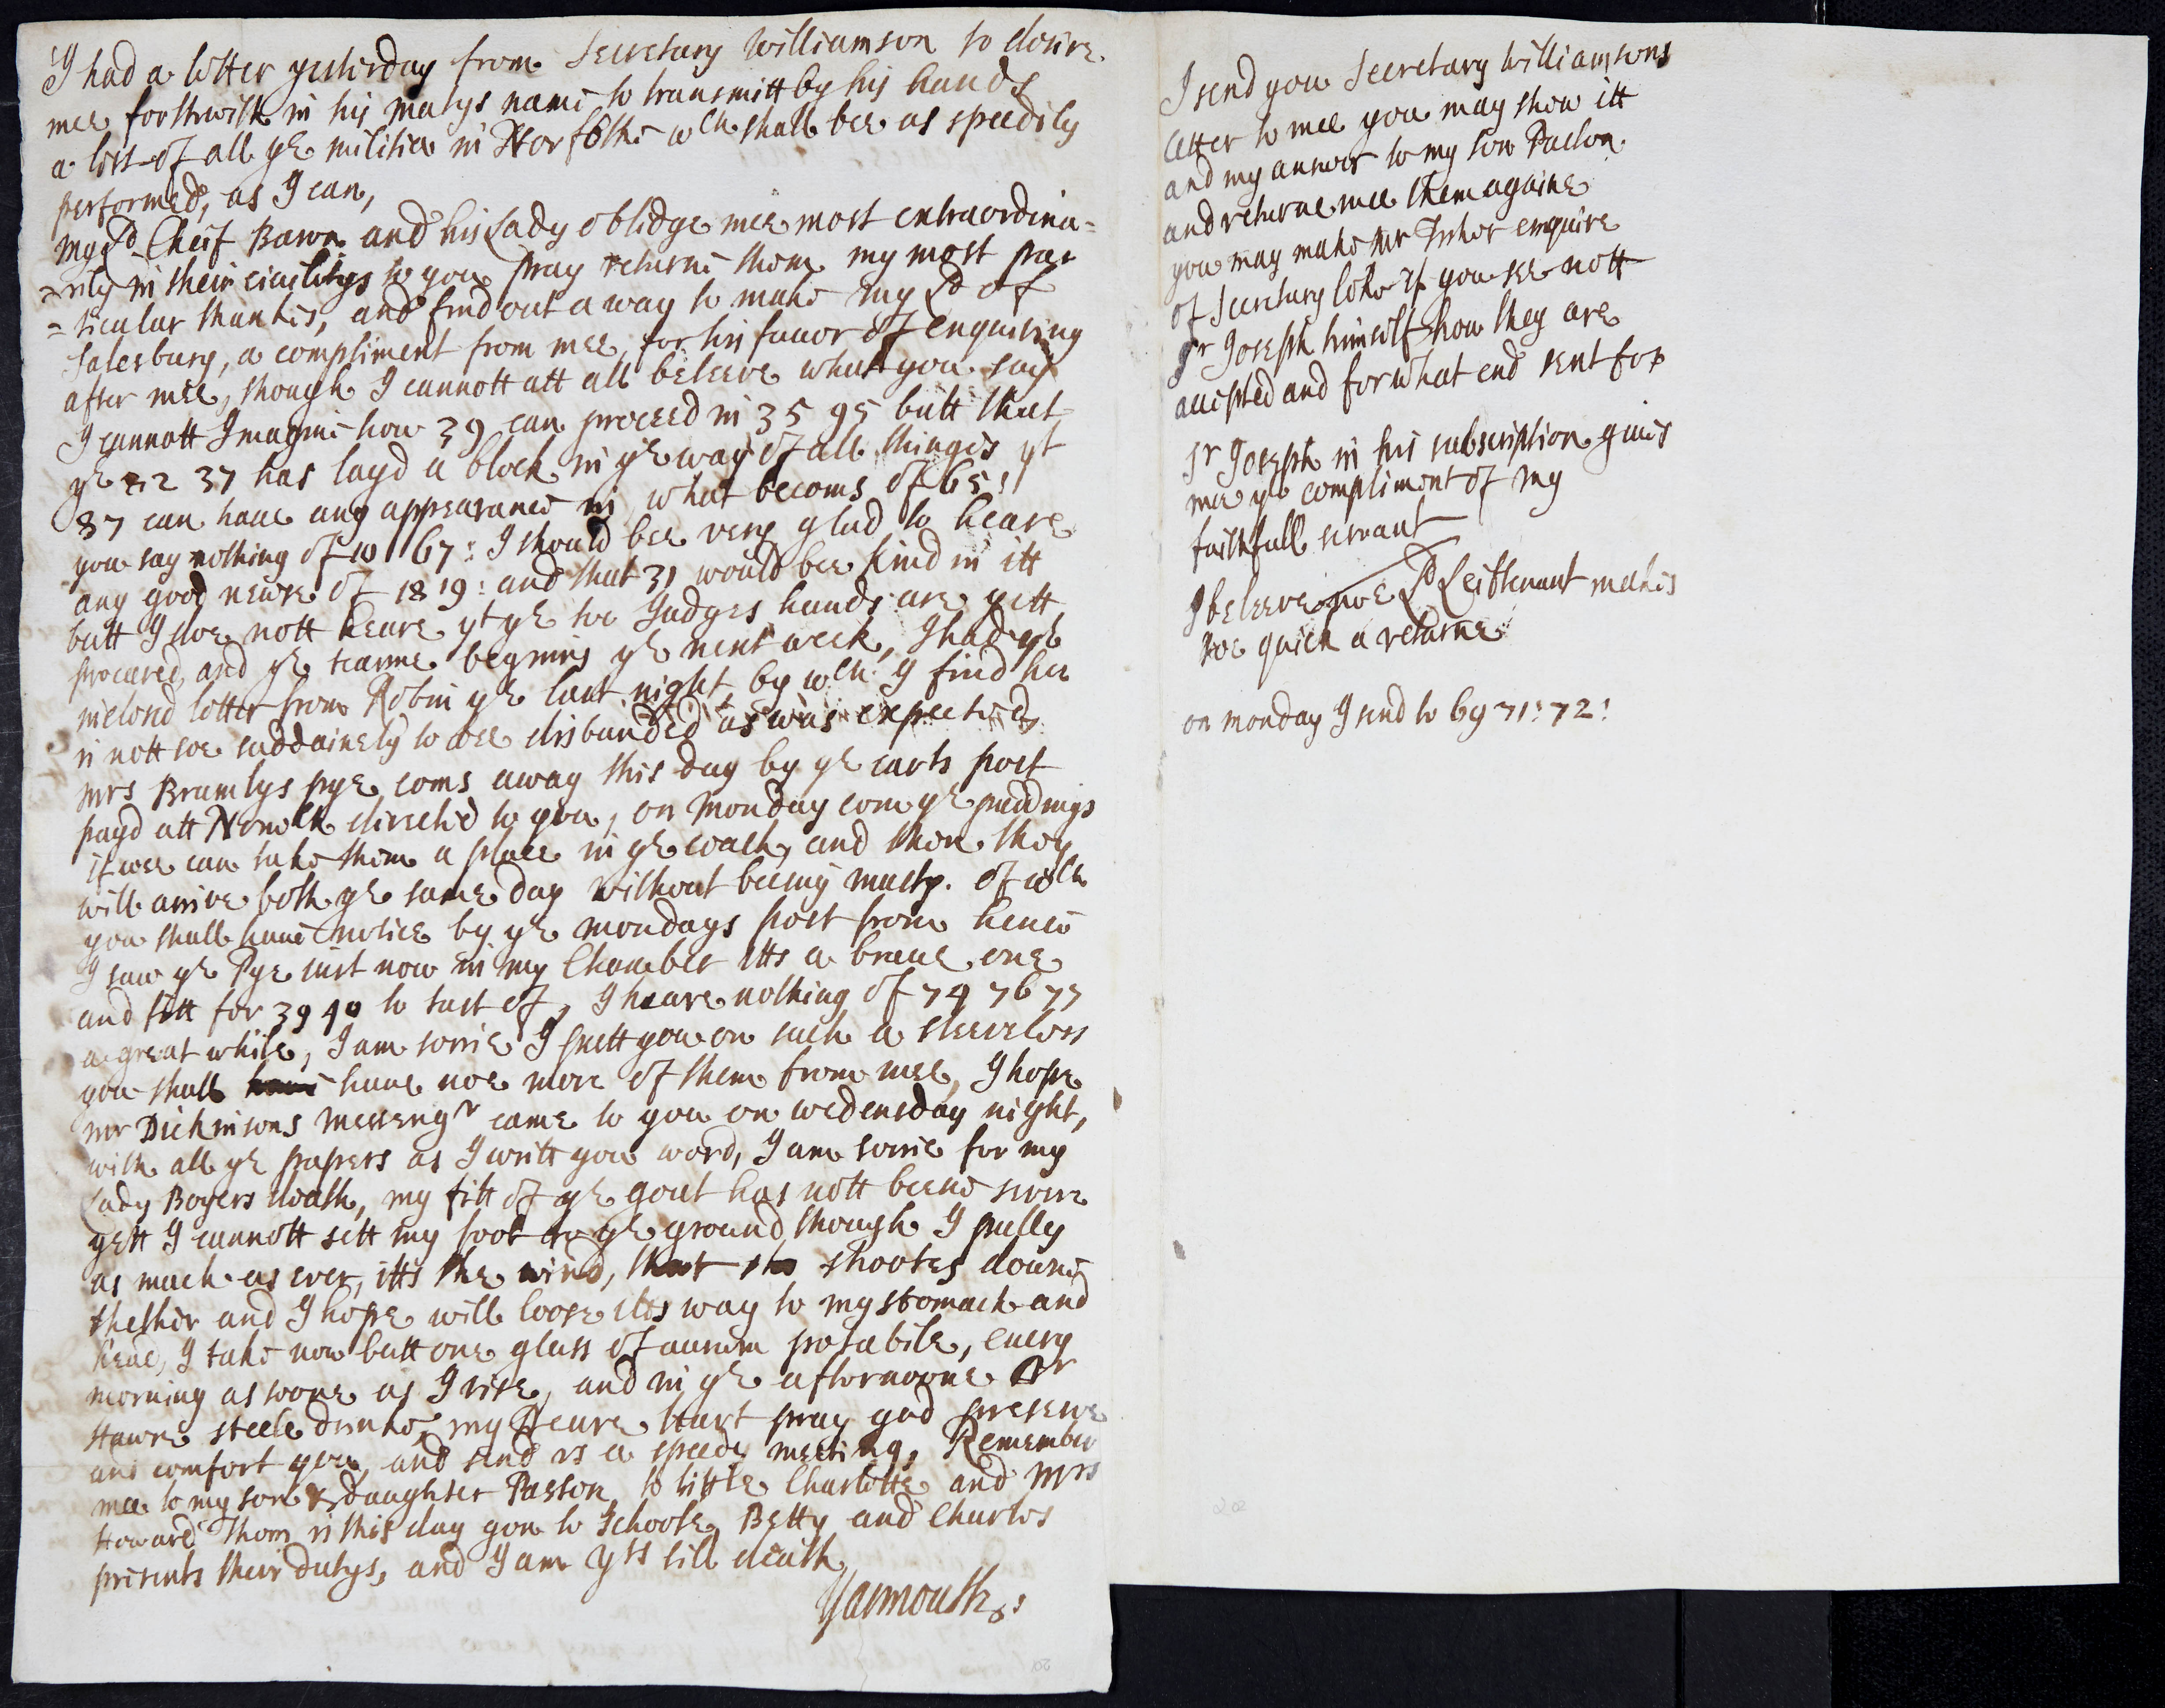 I had a letter yesterday from Secretary Williamson to desire
mee forthwith in his matys name to transmitt by his hands
a list of all ye militia in Norfolke wch shall bee as speedily
performed, as I can,
My Ld Cheif Baron and his Lady oblidge mee most extraordina=
=rily in their civilitys to you pray returne them my most par
=ticular thankes, and find out a way to make my Ld of
Salesbury, a compliment from mee, for his favor of enquiring
after mee, though I cannott att all beleeve what you say
I cannott Imagine how 39 can proceed in 35 95 butt that
ye 37 has layd a block in ye way of all thinges yt
87 can have any appearance in, what becoms of 65:
you say nothing of 10 67: I should bee very glad to heare
any good newse of 18 19: and that 31 would bee kind in itt
butt I doe nott heare yt ye two Judges hands are yett
procured, and ye tearme begining ye next week, I had ye
inclosd letter from Robin ye last night, by wch I find hee
is nott soe suddainely to bee disbanded as was expected,
Mrs Bramlys pye coms away this day by ye carts post
payd att Norwch directed to you, on Monday com ye puddings
if wee can take them a place in ye coach, and then they
will arrive both ye same day without beeing musty. of wch
you shall have notice by ye mondays post from hence
I saw ye Pye just now in my Chamber itts a brave one
and fitt for 39 40 to tast of, I heare nothing of 74 76 77
a great while, I am sorrie I putt you on such a sleeveless
you shall have noe more of them from mee, I hope
mr Dickinsons messengr came to you on wedensday night,
with all ye papers as I writt you word, I am sorrie for my
Lady Boyers death, my fitt of ye gout has nott beene severe
yett I cannott sett my foot to ye ground, though I
as much as ever, itts the wind, that shootes downe
thether and I hope will loose itts way to my stomach and
head, I take now butt one glass of aurum potabile, every
morning as soone as I rise, and in ye afternoone Dr
Hawes steele drinke, my Deare Hart pray god preserve
and comfort you, and send us a speedy meeting, Remember
mee to my son & daughter Paston, to little Charlotte and Mrs
Howard Thom is this day gon to Schoole, Betty and Charles
presents their dutys, and I am yrs till death
Yarmouth:
I send you Secretary Williamsons
letter to mee you may show itt
and my answer to my son Paston
and returne mee them againe
you may make Mr enquire
of Secretary if you see nott
Sr Joseph himself how they are
accepted and for what end sent for
Sr Joseph in his subscription gives
mee ye compliment of my
faithfull servant
I beleeve noe Ld Leiftenant makes
soe quick a returne
on monday I send to by 71: 72:
20
20